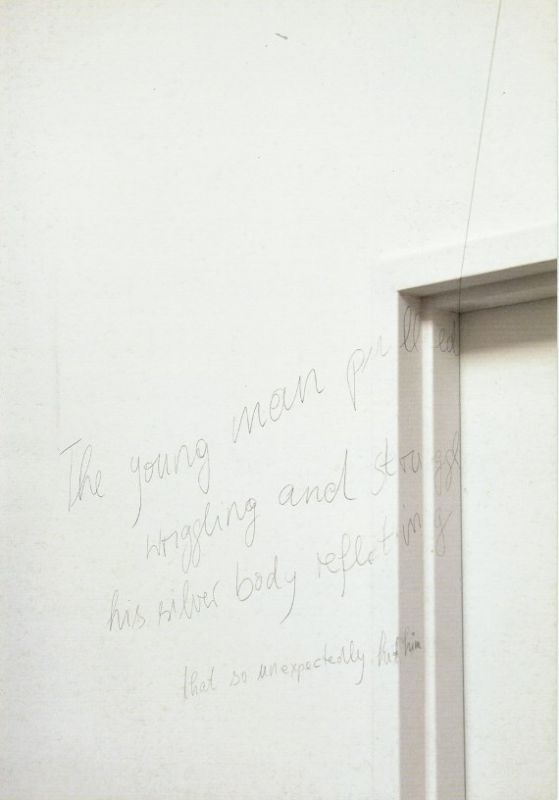 The young man pulled
wriggling and struggl
his silver body reflecting
that so unexpectedly hit him